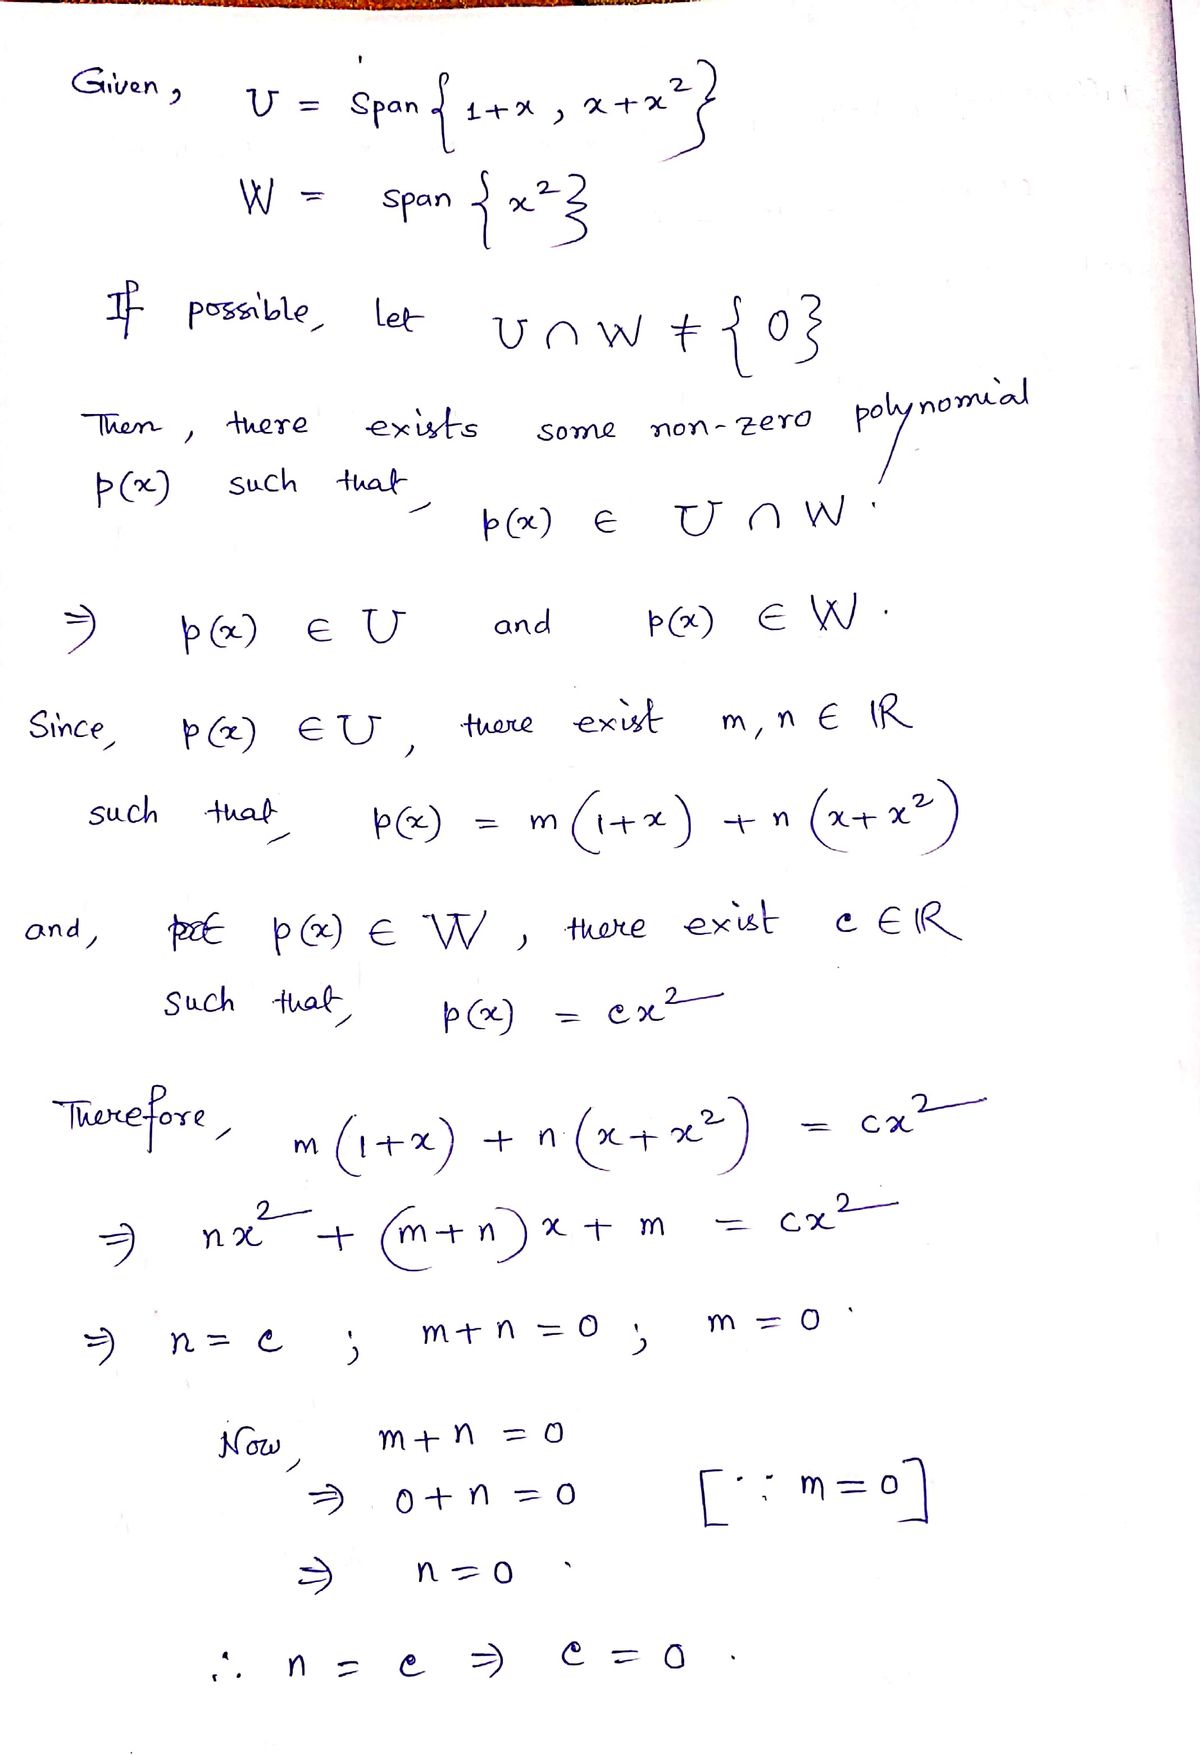 Given, U = Span {1+x, x+x²}
W = span {x²}
If possible, let U ∩ W ≠ {0}
Then, there exists some non-zero polynomial
p(x) such that,
p(x) ∈ U ∩ W.
⇒ p(x) ∈ U and p(x) ∈ W.
Since, p(x) ∈ U, there exist m, n ∈ ℝ
such that, p(x) = m(1+x) + n(x+x²)
and, p(x) ∈ W, there exist c ∈ ℝ
such that, p(x) = cx²
Therefore, m(1+x) + n(x+x²) = cx²
⇒ nx² + (m+n)x + m = cx²
⇒ n = c ; m+n = 0 ; m = 0.
Now, m+n = 0
⇒ 0+n = 0 [∵ m=0]
⇒ n = 0.
∴ n = c ⇒ c = 0.